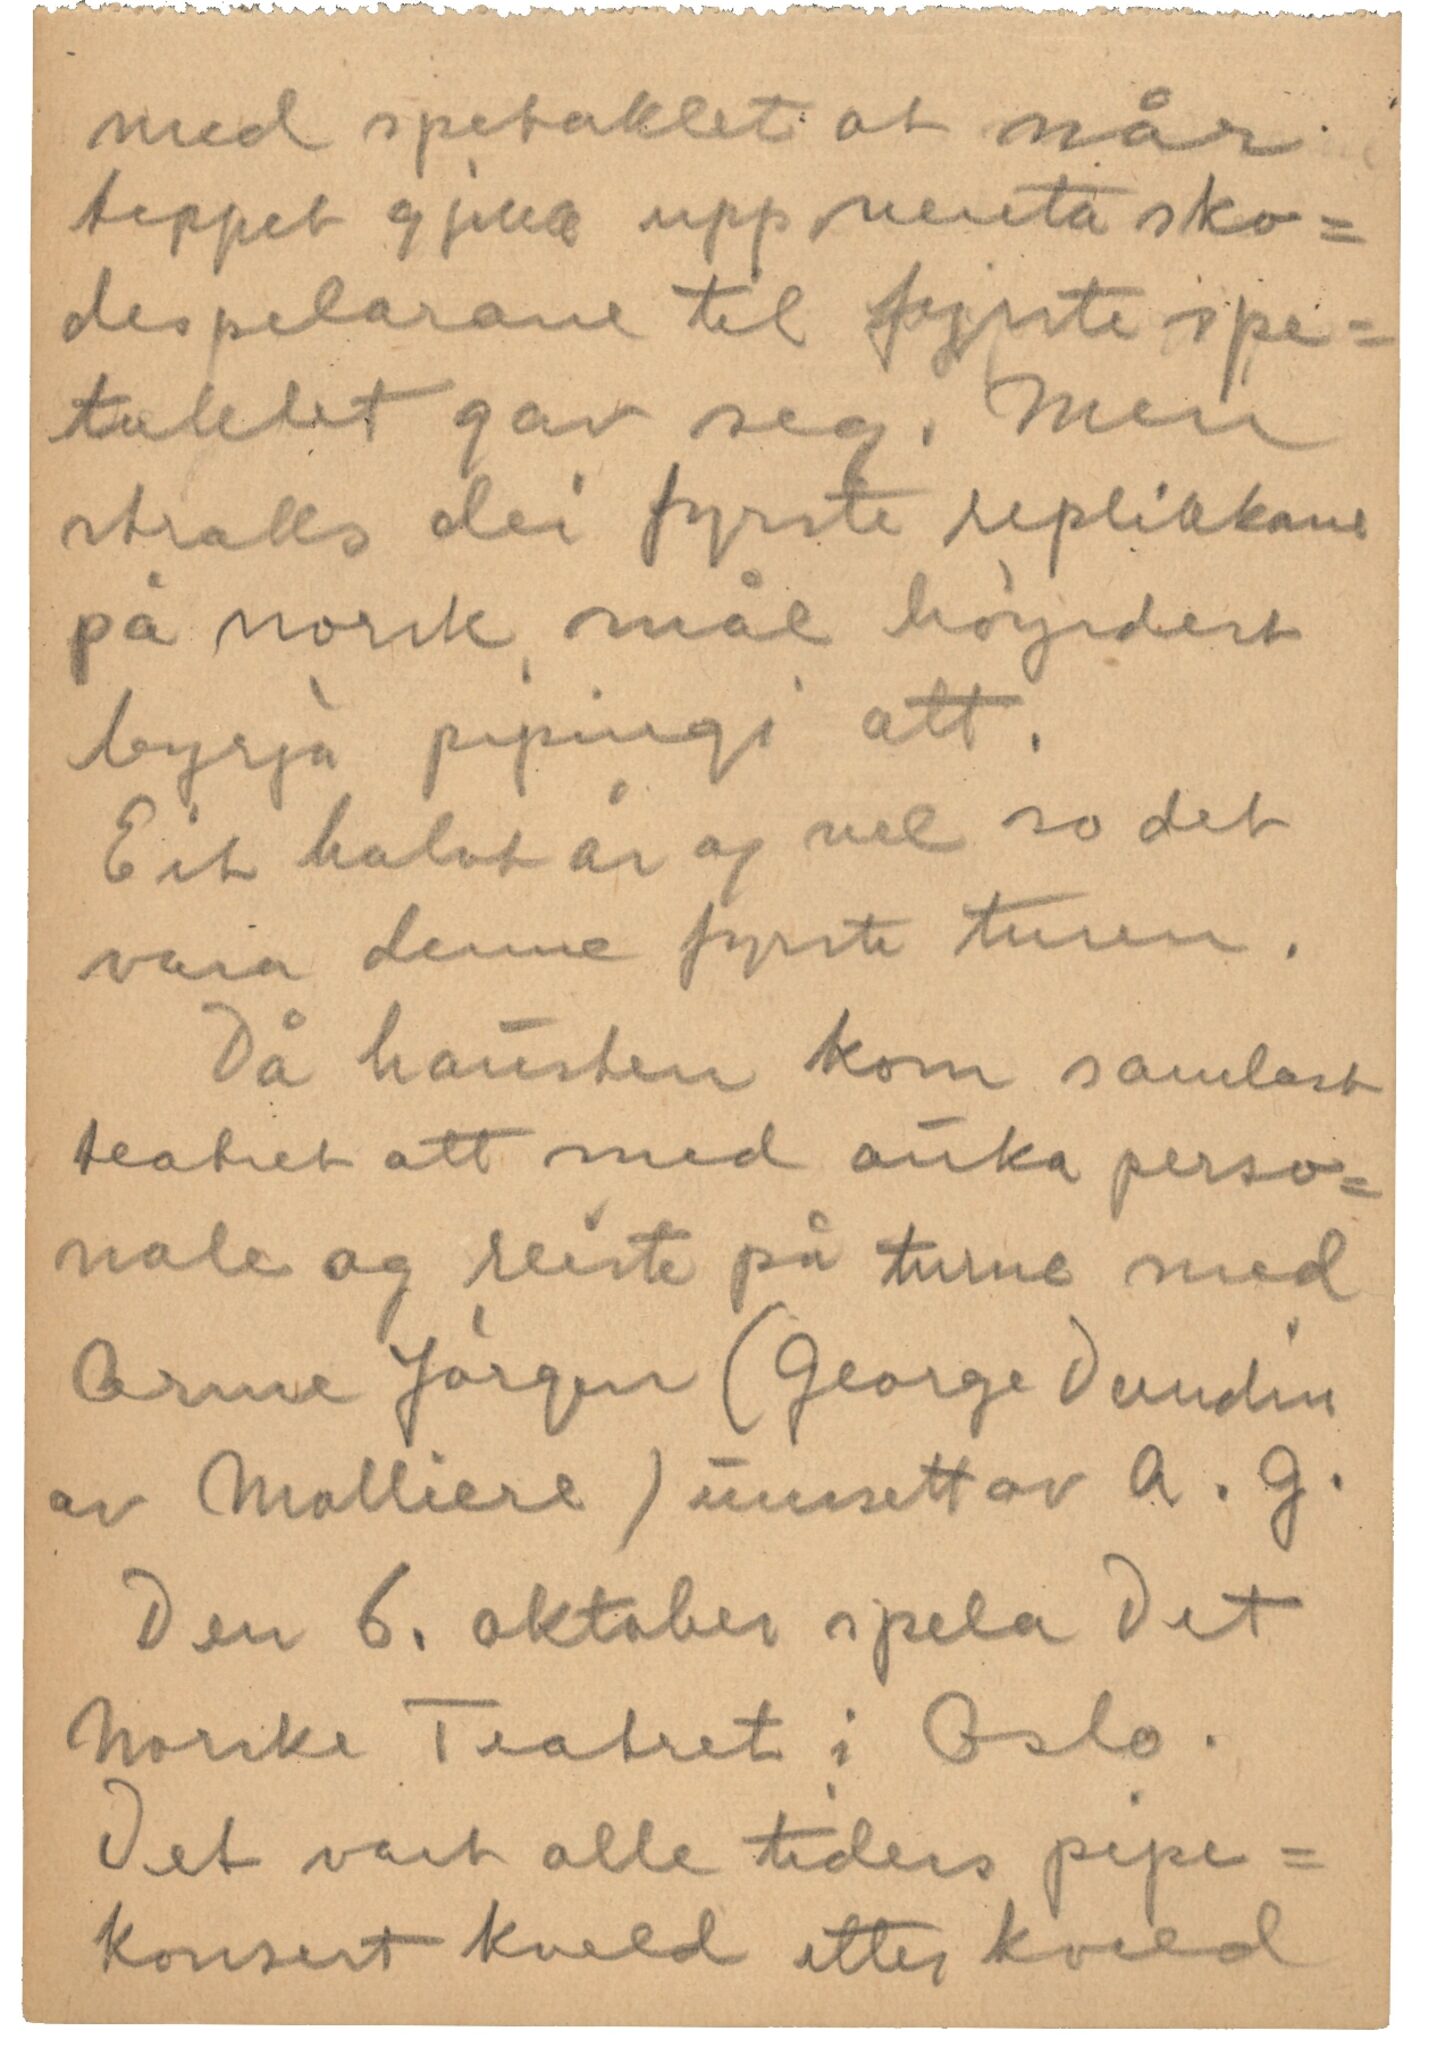 med spetaklet at når
teppet gjekk upp venta sko=
despelarane til fyrste spe=
taklet gav seg. Men
straks dei fyrste replikkane
på norsk mål høyrdest
byrja pipingi att.
Eit halvt år og vel so det
vara denne fyrste turen.
Då hausten kom samlast
teatret att med auka perso=
nale og reiste på turne med
Arme Jørgen (George Dandin
av Molliere) umsett av A. G.
Den 6. oktober spela Det
Norske Teatret i Oslo.
Det vart alle tiders pipe=
konsert kveld etter kveld